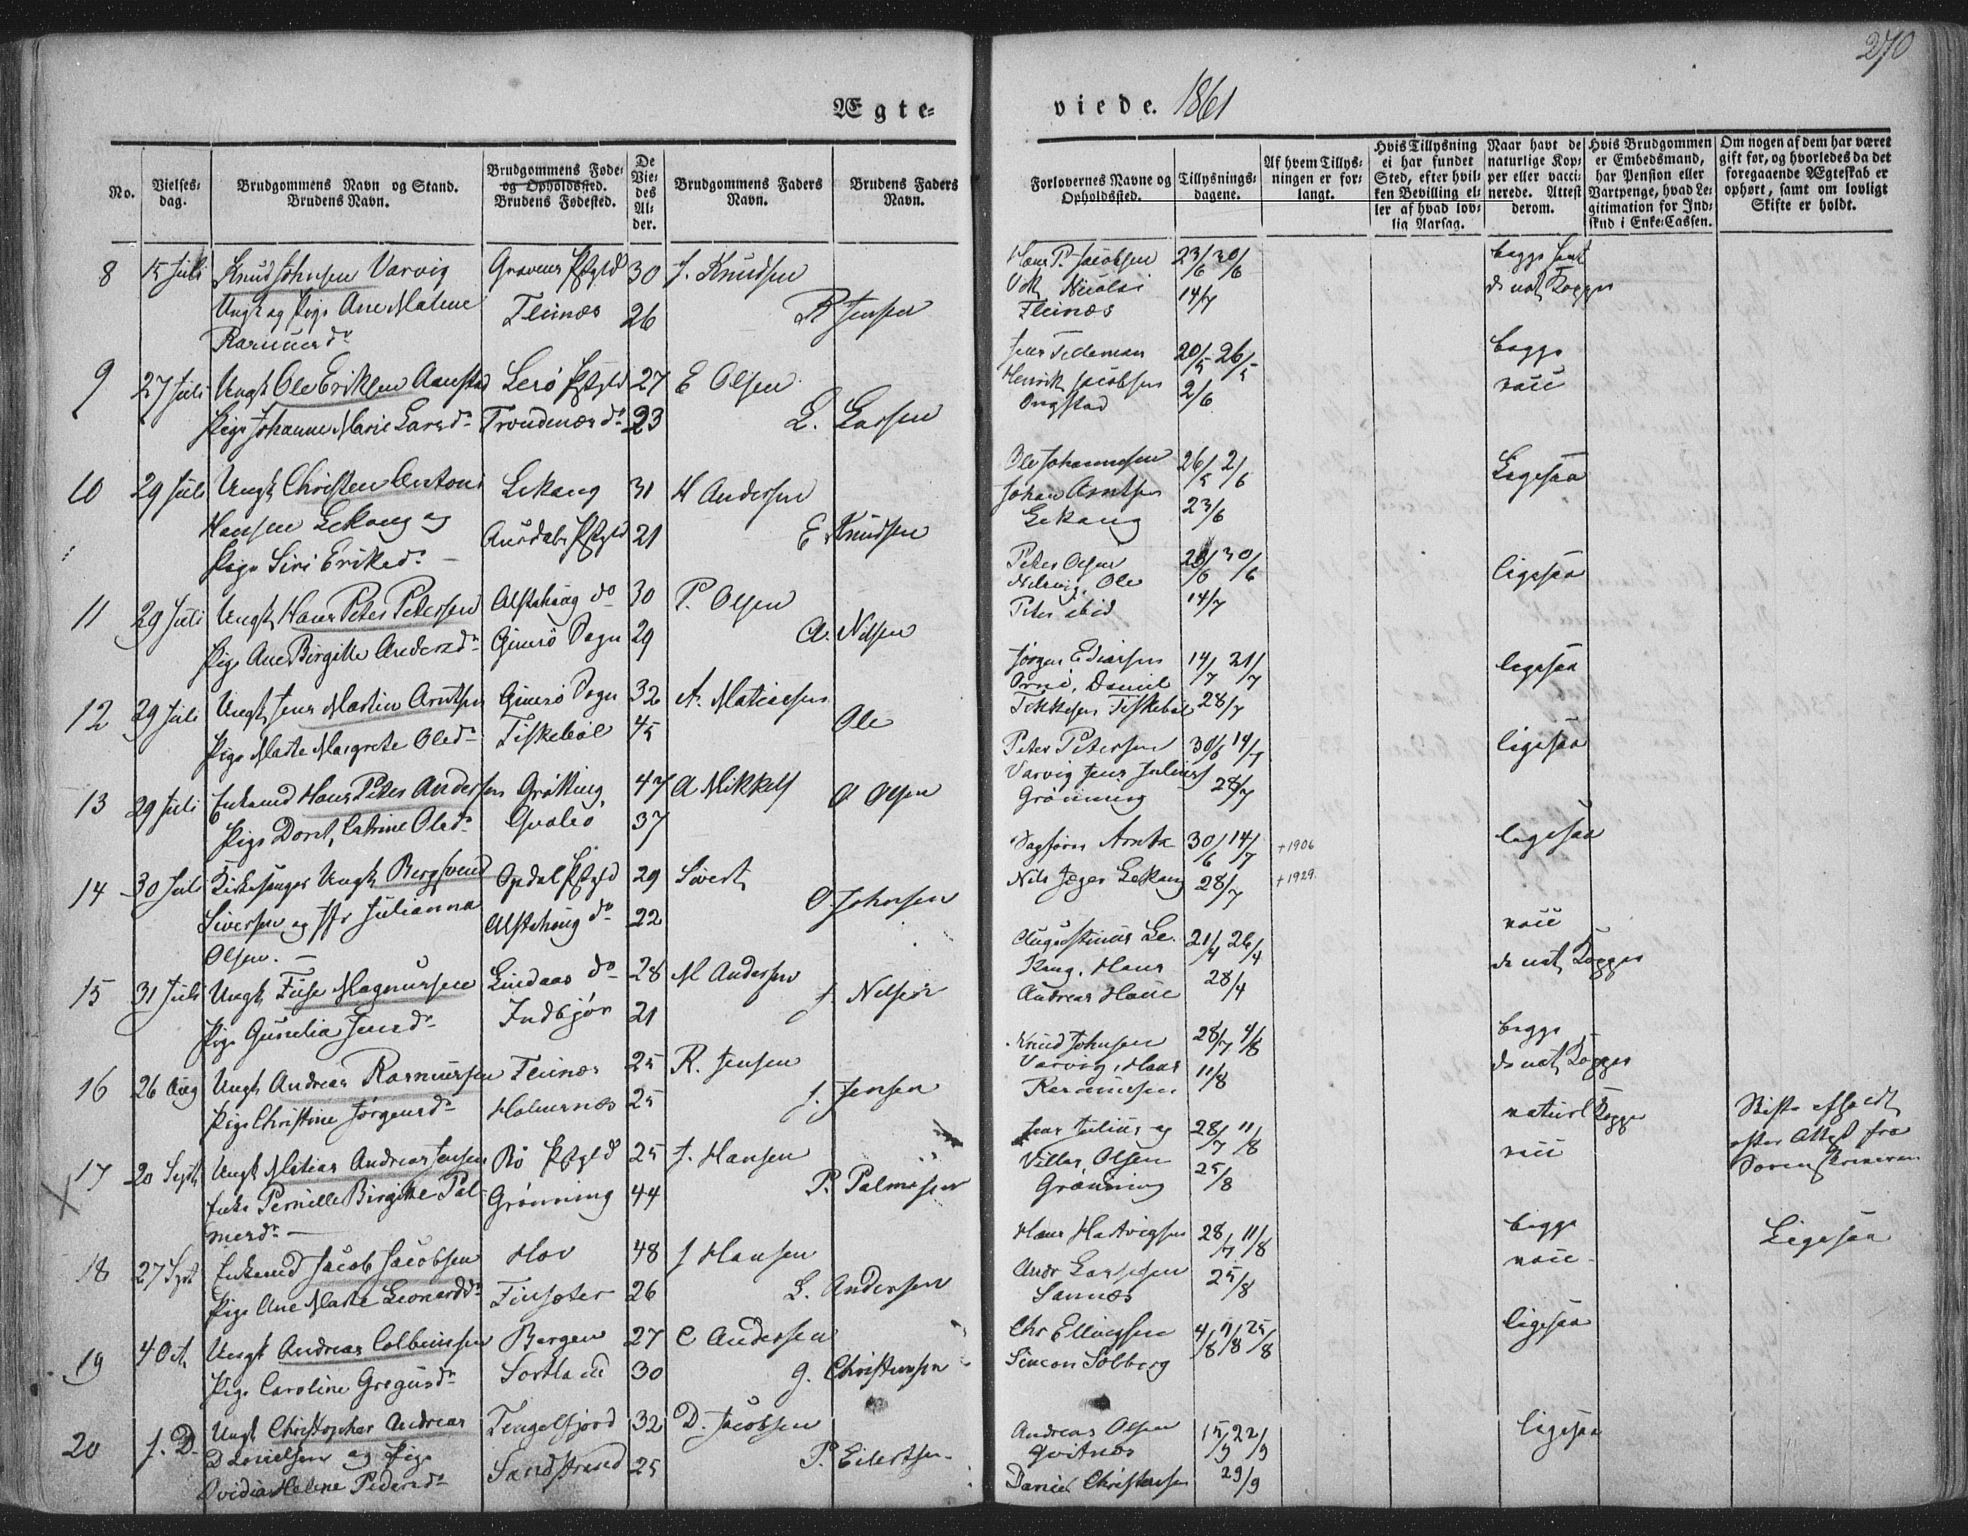 270
Ægte-
viede. 1861
No.
Vielses-
dag.
Brudgommens Navn og Stand.
Brudens Navn.
Brudgommens Føde-
og Opholdssted.
Brudens Fødested.
De
Vie-
des
Al-
der.
Brudgommens Faders
Navn.
Brudens Faders
Navn.
Forlovernes Navne og
Opholdssted.
Tillysnings-
dagene.
Af hvem Tillys-
ningen er for-
langt.
Hvis Tillysning
ei har fundet
Sted, efter hvil-
ken Bevilling el-
ler af hvad lov-
lig Aarsag.
Naar havt de
naturlige Kop-
per eller vacci-
nerede. Attest
derom.
Hvis Brudgommen
er Embedsmand,
har Pension eller
Vartpenge, hvad Le-
gitimation for Ind-
skud i Enke-Cassen.
Om nogen af dem har været
gift før, og hvorledes da det
foregaaende Ægteskab er
ophørt, samt om lovligt
Skifte er holdt.
8 15 Juli Knud Johnsen Varvig 30 J. Knudsen
Ungk og Pige Ane Malene Fleinæs 26 R Jensen
Rasmusd.
Hans P. Jacobsen 23/6 30/6
Nicolai
Fleinæs 14/7
begge havt
d. nat. Kopper
9 27 Juli Ungk Ole Eriksen Aanstad 27 E Olsen
Pige Johanne Marie Larsd. Trondenæs do 23 L. Larsen
Jens Tedeman 20/5 26/5
Henrik Jacobsen 2/6
Ongstad
begge
vacc
10 29 Juli Ungk Christen Antoni Lekang 31 H Andersen
Hansen Lekang og
Pige Siri Eriksd. Aurdahl Pstgld 21 E Knudsen
Ole Johannesen 26/5 2/6
Johan Arntsen 23/6
Lekang
Ligesaa
11 29 Juli Ungk Hans Peter Petersen Alstahoug do 30 P. Olsen
Pige Ane Birgitte Andersd. Gimsø Sogn 29 A. Nilsen
Peter Olsen 23/6 30/6
Ole
Peter ibid 14/7
ligesaa
12 29 Juli Ungk Jens Martin Arntsen Gimsø Sogn 32 A. Matiasen
Pige Marte Margrete Olsd. Fiskebøl 45 Ole
Jørgen 14/7 21/7
Daniel
Fiskebøl 28/7
ligesaa
13 29 Juli Enkemd Hans Peter Andersen Grøtting 47 A Mikkels
Pige Doret. Catrine Olsd. Qvalsø 37 O Olsen
Peter Petersen 30/6 14/7
Varvig Jens Julius
Grønning 28/7
ligesaa
14 30 Juli Kirkesanger Ungk Bergsvend Opdal Pstgld 29 Sivert
Siversen og Jfr Julianna Alstahoug do 22 O. Johnsen
Olsen.
Sagfører Arntz 30/6 14/7 +1906
Nils Jeger Lekang 28/7 +1929.
ligesaa
15 31 Juli Ungk Magnussen Lindaas do 28 M Andersen
Pige Gunelia Jensd. Indbjør 21 J Nilsen
Augustinus Le- 21/4 26/4
kang, Hans
Andreas 28/4
vacc
d. nat. Kopper
16 26 Aug Ungk Andreas Rasmussen Fleinæs 25 R. Jensen
Pige Christine Jørgensd. Holmsnæs 25 J. Jensen
Knud Johnsen 28/7 4/8
Varvig, Hans
Rasmussen 11/8
begge
d. nat. Kopper
X 17 20 Septb Ungk Matias Andreas Jensen Bø Pstgld 25 J. Hansen
Enke Pernille Birgitte Pal- Grønning 44 P. Palmesen
mesd.
Jens Julius og 28/7 11/8
Villas Olsen
Grønning 25/8
naturl Kopper
vacc
Skifte afholdt
efter Attest fra
Sorenskriveren
18 27 Sept Enkemd Jacob Jacobsen Hov 48 J Hansen
Pige Ane Marte Leonardsd. Finsæter 26 L. Andersen
Hans Hartvigsen 28/7 11/8
Andr Larsen
Sannæs 25/8
begge
vacc.
Ligesaa
19 4 Oct. Ungk Andreas Colbeinsen Bergen 27 C Andersen
Pige Caroline Gregusd. Sortland 30 G. Christensen
Chr Ellingsen 4/8 11/8 25/8
Simon Solberg
ligesaa
20 J. D. Ungk Christopher Andreas Tengelfjord 32 D. Jacobsen
Danielsen og Pige
Ovidia Helene Pedersd. Sandstrand 25 P. Eilertsen
Andreas Olsen 15/9 22/9
Qvitnæs
Daniel Christensen 29/9
ligesaa